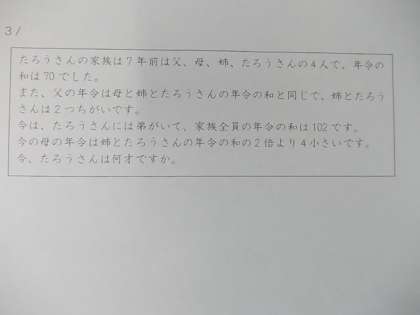 31
たろうさんの家族は7年前は父、母、姉、たろうさんの4人で、年令の
和は70でした。
また、父の年令は母と姉とたろうさんの年令の和と同じで、姉とたろう
さんは2つちがいです。
今は、たろうさんには弟がいて、家族全員の年令の和は102です。
今の母の年令は姉とたろうさんの年令の和の2倍より4小さいです。
今、たろうさんは何才ですか。